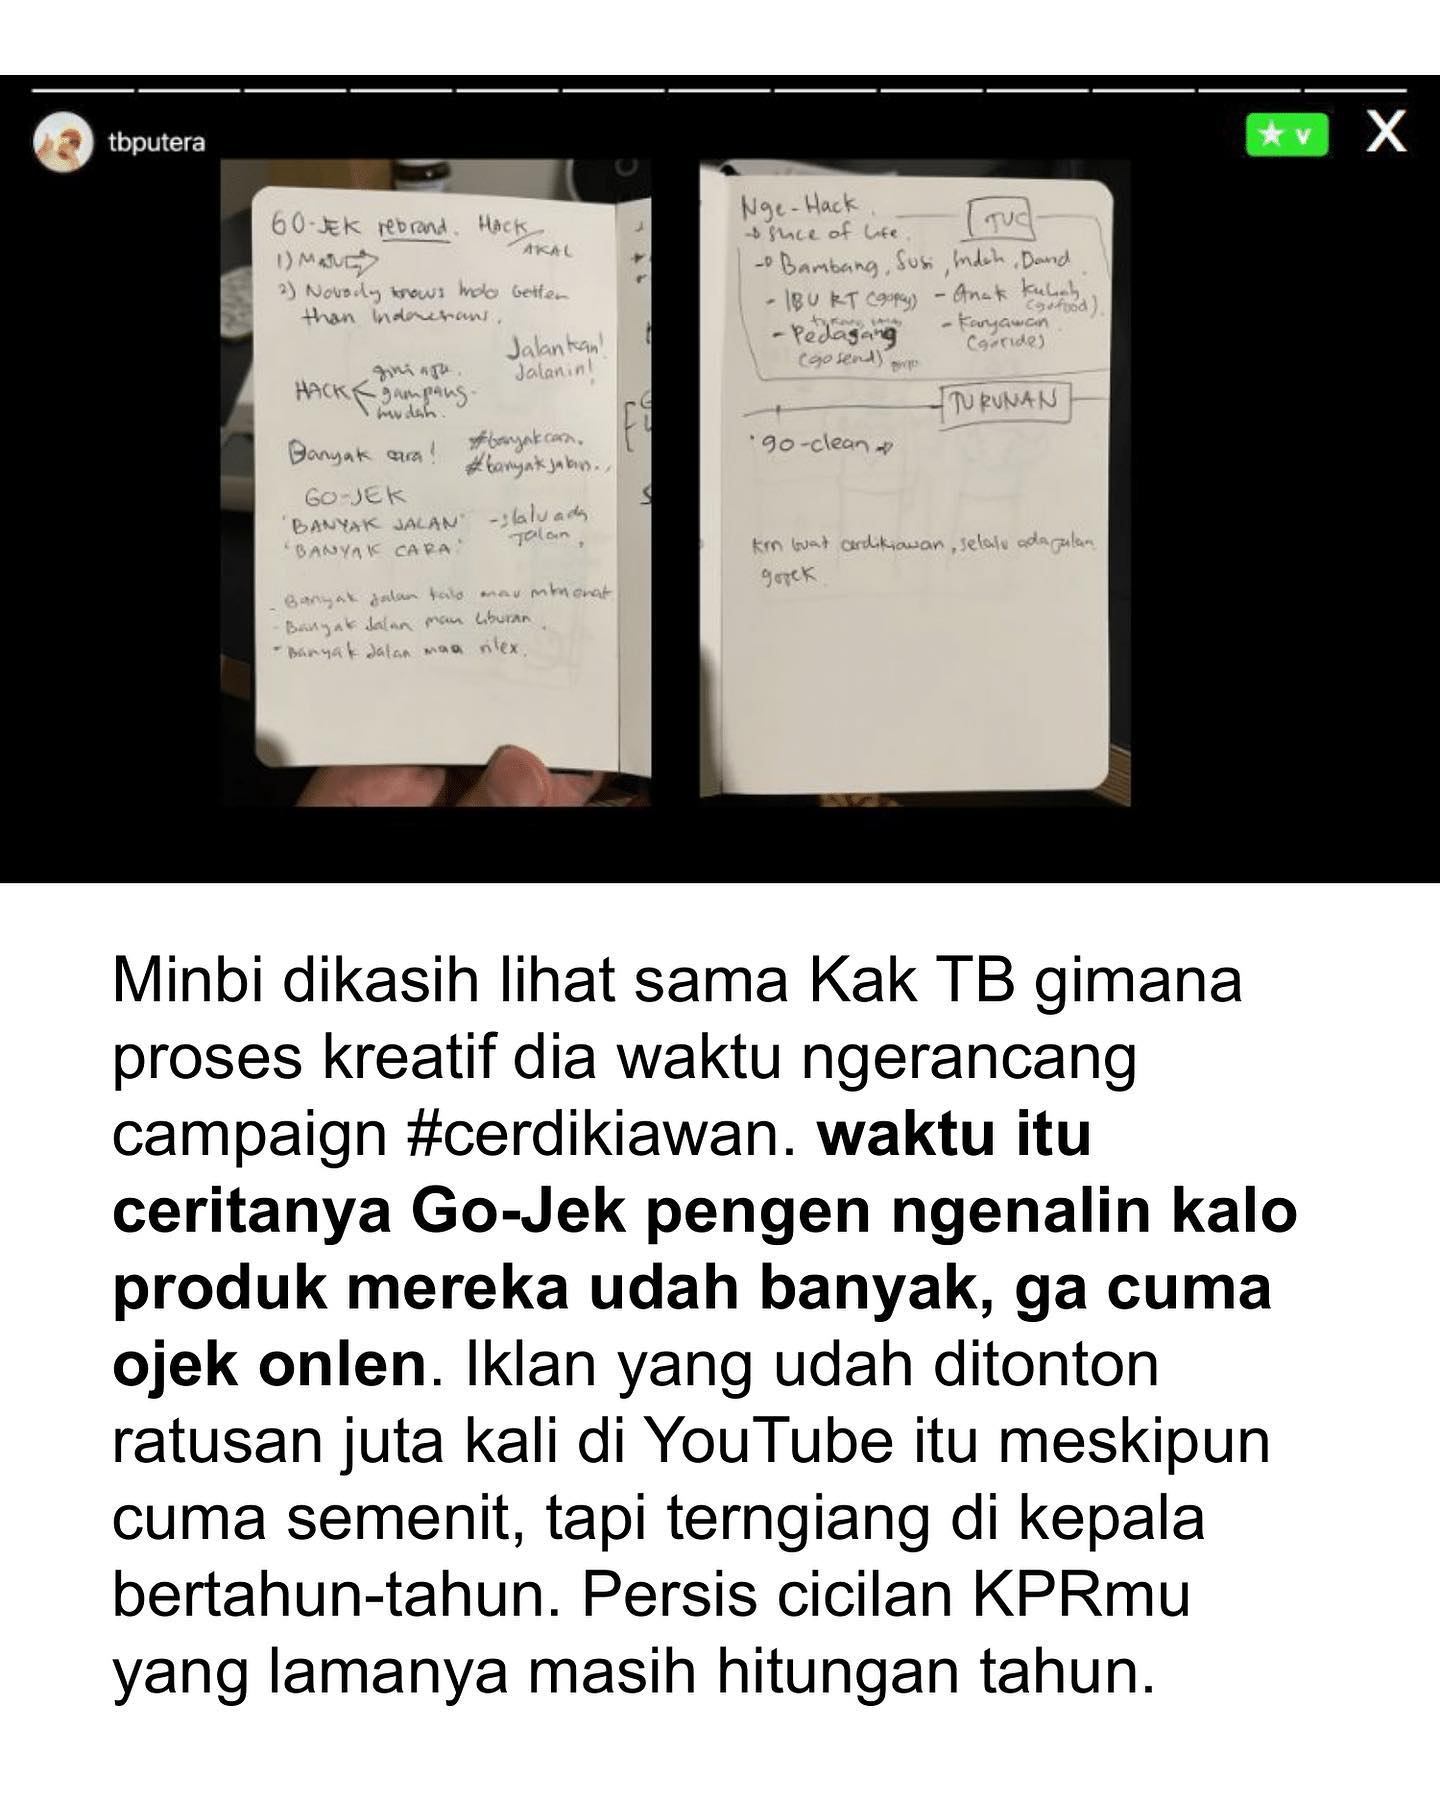 tbputera
v
X
GO-JEK rebrand. HACK/
AKAL
1) MAJU
2) Nobody knows Indo better
than Indonesians.
Jalankan!
Jalanin!
gini aja.
HACK gampang.
mudah.
Banyak cara! #banyakcara.
#banyakjalan.
GO-JEK
'BANYAK JALAN' - selalu ada
jalan.
'BANYAK CARA.'
- Banyak jalan kalo mau
- Banyak jalan mau liburan.
- Banyak jalan mau rilex.
Nge-Hack.
TVC
→ slice of life.
→ Bambang, Susi, Indah, Dand
- IBU RT (gopay) - Anak kuliah
(gofood)
- Pedagang - Karyawan
(gosend) (goride)
TURUNAN
• go-clean →
krn buat cerdikiawan, selalu ada jalan
gojek.
Minbi dikasih lihat sama Kak TB gimana
proses kreatif dia waktu ngerancang
campaign #cerdikiawan. waktu itu
ceritanya Go-Jek pengen ngenalin kalo
produk mereka udah banyak, ga cuma
ojek onlen. Iklan yang udah ditonton
ratusan juta kali di YouTube itu meskipun
cuma semenit, tapi terngiang di kepala
bertahun-tahun. Persis cicilan KPRmu
yang lamanya masih hitungan tahun.